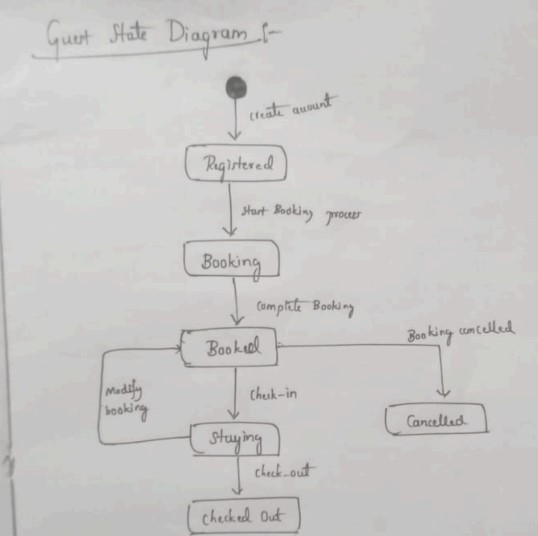 Guest State Diagram :-
create account
Registered
Start Booking process
Booking
Complete Booking
Booked
Booking cancelled
Modify
booking
Check-in
Cancelled
Staying
check-out
Checked Out